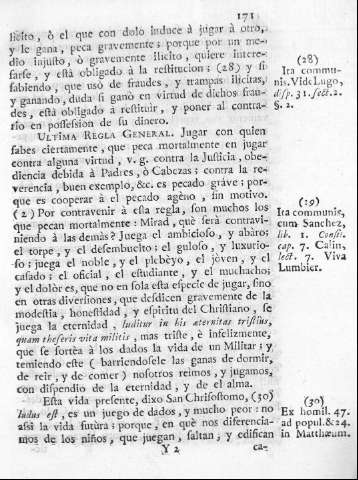 171
licito, ò el que con dolo induce à jugar à otro,
y le gana, peca gravemente; porque por un me-
dio injusto, ò gravemente ilicito, quiere intere-
sarse, y està obligado à la restitucion; (28) y si
sabiendo, que usò de fraudes, y trampas ilicitas,
y ganando, duda si ganò en virtud de dichos frau-
des, està obligado à restituir, y poner al contra-
rio en possession de su dinero.
ULTIMA REGLA GENERAL. Jugar con quien
sabes ciertamente, que peca mortalmente en jugar
contra alguna virtud, v. g. contra la Justicia, obe-
diencia debida à Padres, ò Cabezas: contra la re-
verencia, buen exemplo, &c. es pecado grave; por-
que es cooperar à el pecado ageno, sin motivo.
(2) Por contravenir à esta regla, son muchos los
que pecan mortalmente: Mirad, què serà contravi-
niendo à las demàs? Juega el ambicioso, y abaro;
el torpe, y el desembucito; el guloso, y luxurio-
so; juega el noble, y el plebeyo, el joven, y el
casado; el oficial, el estudiante, y el muchacho;
y el dolòr es, que no en sola esta especie de jugar, sino
en otras diversiones, que desdicen gravemente de la
modestia, honestidad, y espiritu del Christiano, se
juega la eternidad, luditur in his æternitas tristius,
quam theseris vita militis, mas triste, è infelizmente,
que se sortèa à los dados la vida de un Militar; y
temiendo este (barriendosele las ganas de dormir,
de reir, y de comer) nosotros reimos, y jugamos,
con dispendio de la eternidad, y de el alma.
Esta vida presente, dixo San Chrisostomo, (30)
ludus est, es un juego de dados, y mucho peor: no
assi la vida futùra: porque, en què nos diferencia-
mos de los niños, que juegan, saltan, y edifican
Y 2 ca-
(28)
Ita commu-
nis. Vide Lugo,
disp. 31. sect. 2.
§. 2.
(29)
Ita communis,
cum Sanchez,
lib. 1. Consi.
cap. 7. Calin,
lect. 7. Viva
Lumbier.
(30)
Ex homil. 47.
ad popul. & 24.
in Matthæum.